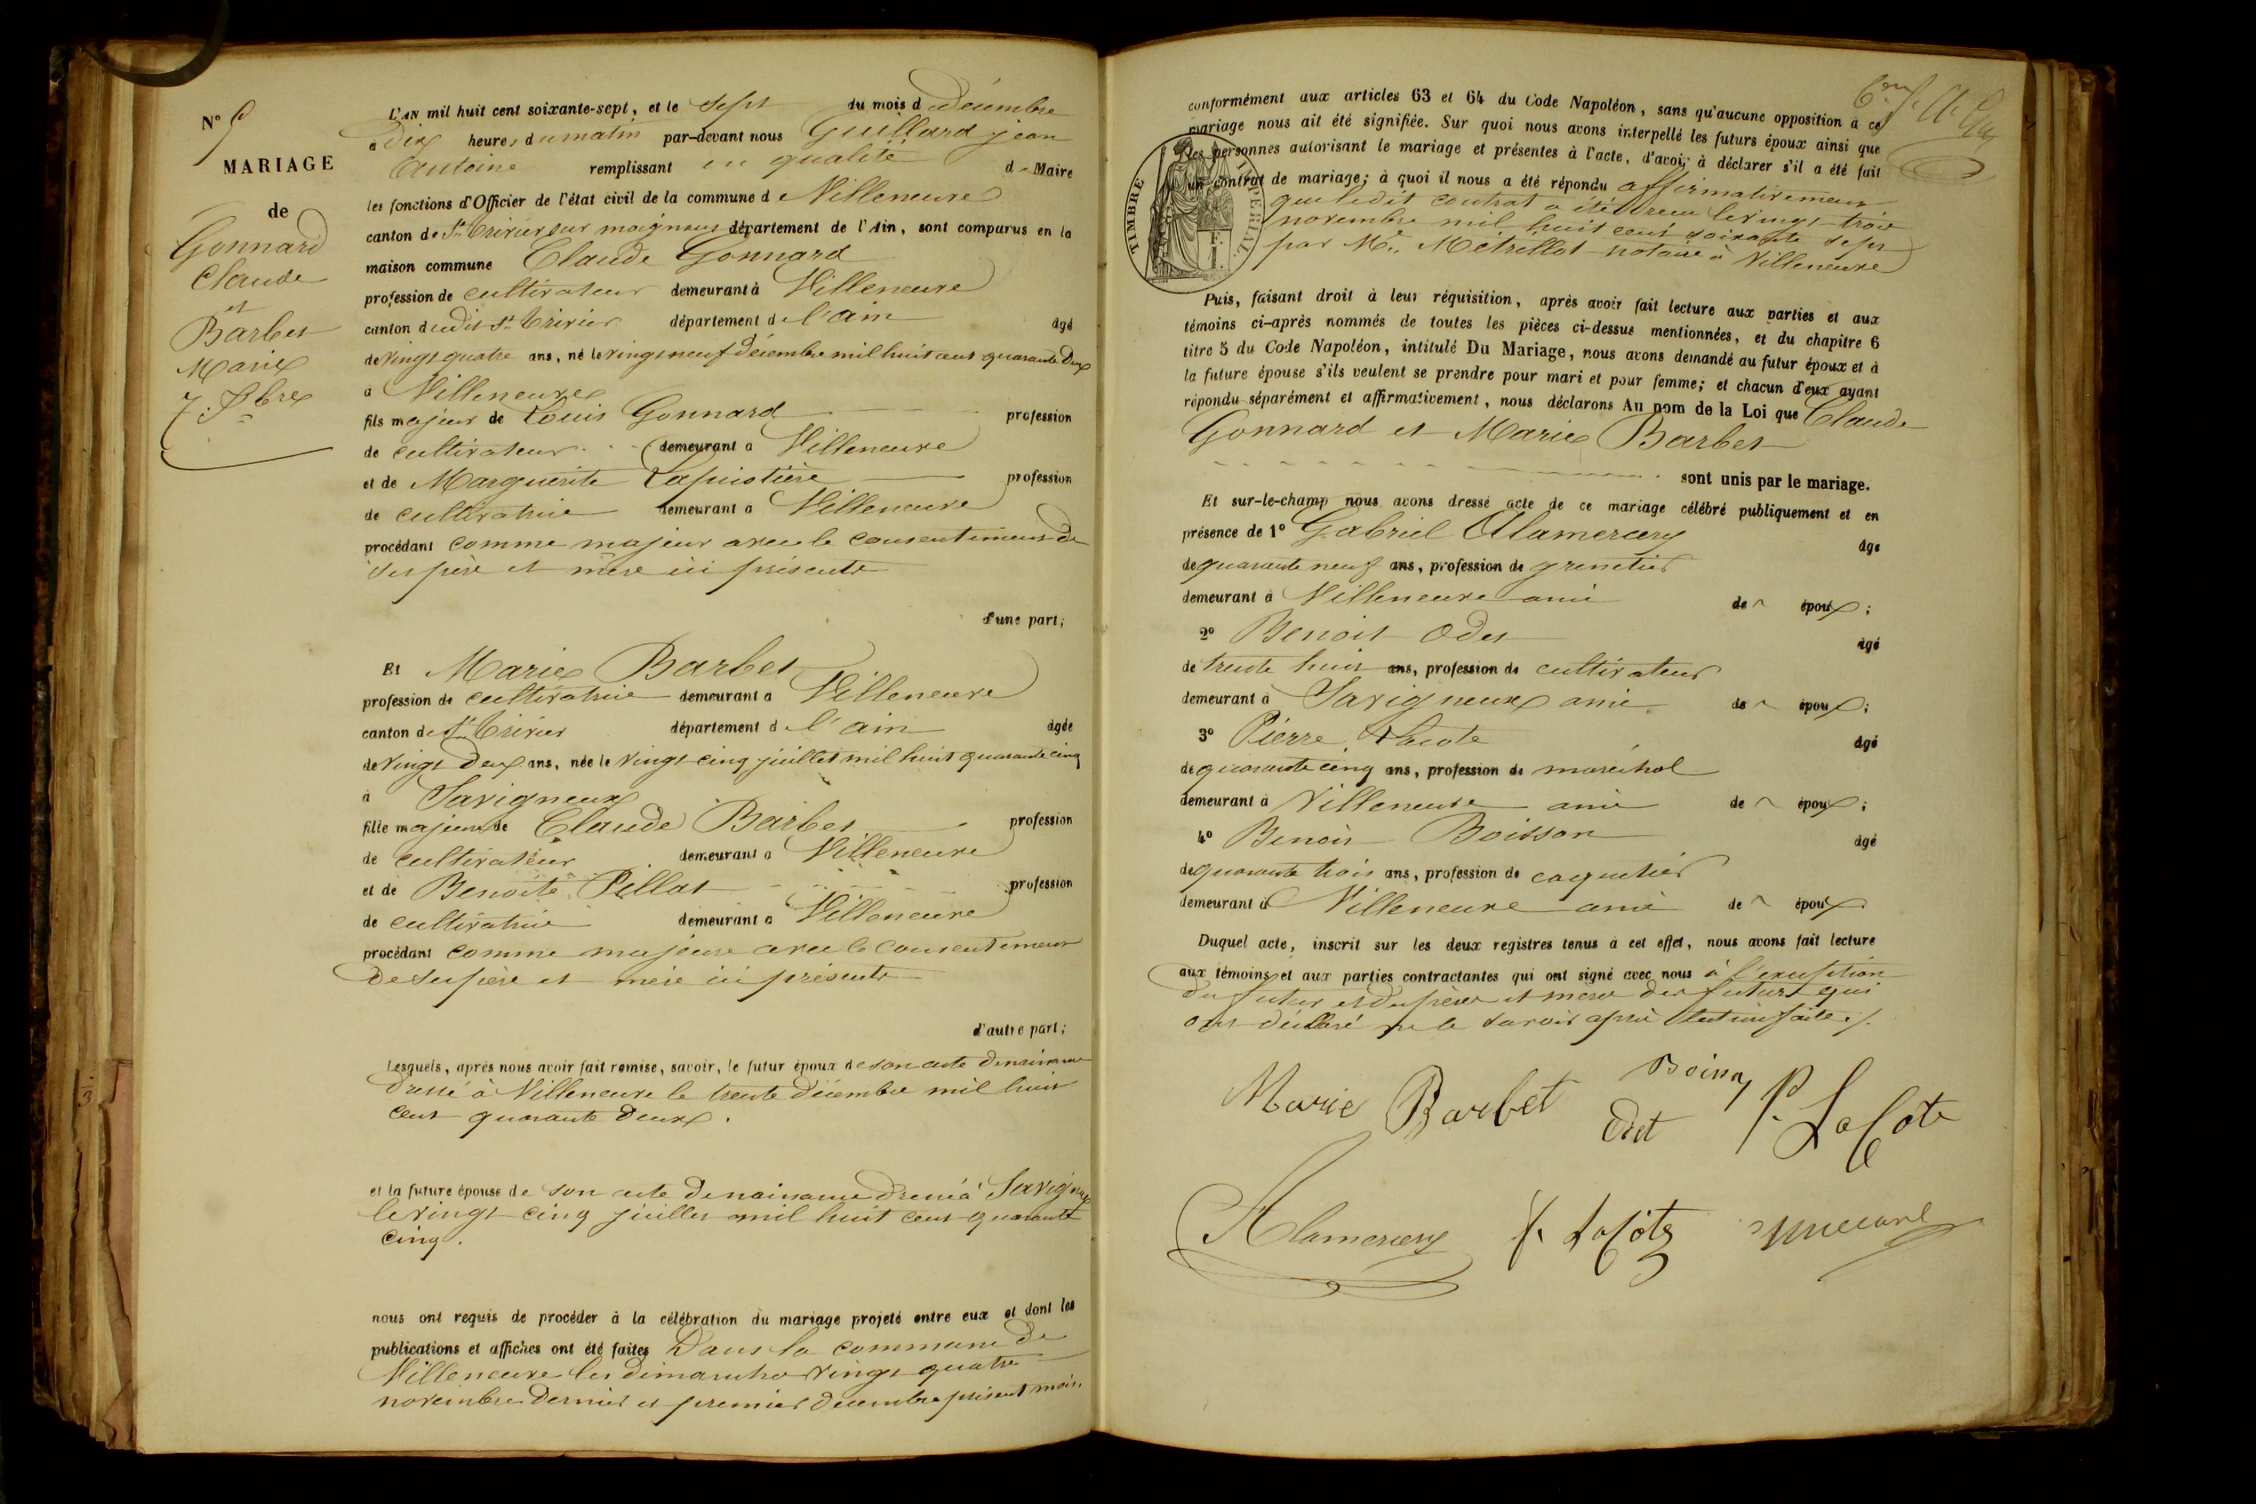 N° 9
MARIAGE
de
Gonnard
Claude
et
Barbet
Marie
7. Xbre
L'AN mil huit cent soixante-sept, et le sept du mois de décembre
à dix heures du matin par-devant nous Guillard jean
Antoine remplissant en qualité de Maire
les fonctions d'Officier de l'état civil de la commune de Villeneuve
canton de St Trivier sur moignans département de l'Ain, sont comparus en la
maison commune Claude Gonnard
profession de cultivateur demeurant à Villeneuve
canton dudit St Trivier département de l'ain âgé
de vingt quatre ans, né le vingt neuf décembre mil huit cent quarante deux
à Villeneuve
fils majeur de Louis Gonnard profession
de cultivateur demeurant à Villeneuve
et de Marguerite Lapiotière profession
de cultivatrice demeurant à Villeneuve
procédant comme majeur avec le consentement de
ses père et mère ici présents
d'une part;
Et Marie Barbet
profession de cultivatrice demeurant à Villeneuve
canton de St Trivier département de l'ain âgée
de vingt deux ans, née le vingt cinq juillet mil huit quarante cinq
à Savigneux
fille majeure de Claude Barbet profession
de cultivateur demeurant à Villeneuve
et de Benoite Pillat profession
de cultivatrice demeurant à Villeneuve
procédant comme majeure avec le consentement
de ses père et mère ici présents
d'autre part;
Lesquels, après nous avoir fait remise, savoir, le futur époux de son acte de naissance
dressé à Villeneuve le trente décembre mil huit
cent quarante deux.
et la future épouse de son acte de naissance dressé à Savigneux
le vingt cinq juillet mil huit cent quarante
cinq.
nous ont requis de procéder à la célébration du mariage projeté entre eux et dont les
publications et affiches ont été faites Dans la commune de
Villeneuve les dimanches vingt quatre
novembre dernier et premier décembre présent mois
conformément aux articles 63 et 64 du Code Napoléon, sans qu'aucune opposition à ce
mariage nous ait été signifiée. Sur quoi nous avons interpellé les futurs époux ainsi que
les personnes autorisant le mariage et présentes à l'acte, d'avoir à déclarer s'il a été fait
un contrat de mariage; à quoi il nous a été répondu affirmativement
que ledit contrat a été reçu le vingt trois
novembre mil huit cent soixante sept
par Me Métrillot notaire à Villeneuve
TIMBRE IMPÉRIAL
Puis, faisant droit à leur réquisition, après avoir fait lecture aux parties et aux
témoins ci-après nommés de toutes les pièces ci-dessus mentionnées, et du chapitre 6
titre 5 du Code Napoléon, intitulé Du Mariage, nous avons demandé au futur époux et à
la future épouse s'ils veulent se prendre pour mari et pour femme; et chacun d'eux ayant
répondu séparément et affirmativement, nous déclarons Au nom de la Loi que Claude
Gonnard et Marie Barbet
sont unis par le mariage.
Et sur-le-champ nous avons dressé acte de ce mariage célébré publiquement et en
présence de 1° Gabriel Alamercery âgé
de quarante neuf ans, profession de grenetier
demeurant à Villeneuve ami de époux;
2° Benoit Odet âgé
de trente huit ans, profession de cultivateur
demeurant à Savigneux ami de époux;
3° Pierre Lacote âgé
de quarante cinq ans, profession de maréchal
demeurant à Villeneuve ami de époux;
4° Benoit Boisson âgé
de quarante trois ans, profession de coquetier
demeurant à Villeneuve ami de époux
Duquel acte, inscrit sur les deux registres tenus à cet effet, nous avons fait lecture
aux témoins et aux parties contractantes qui ont signé avec nous à l'exception
du futur et des pères et mères des futurs qui
ont déclaré ne le savoir après lecture faite ./.
Marie Barbet
Odet
P. LaCote
Alamercery
f. LaCote